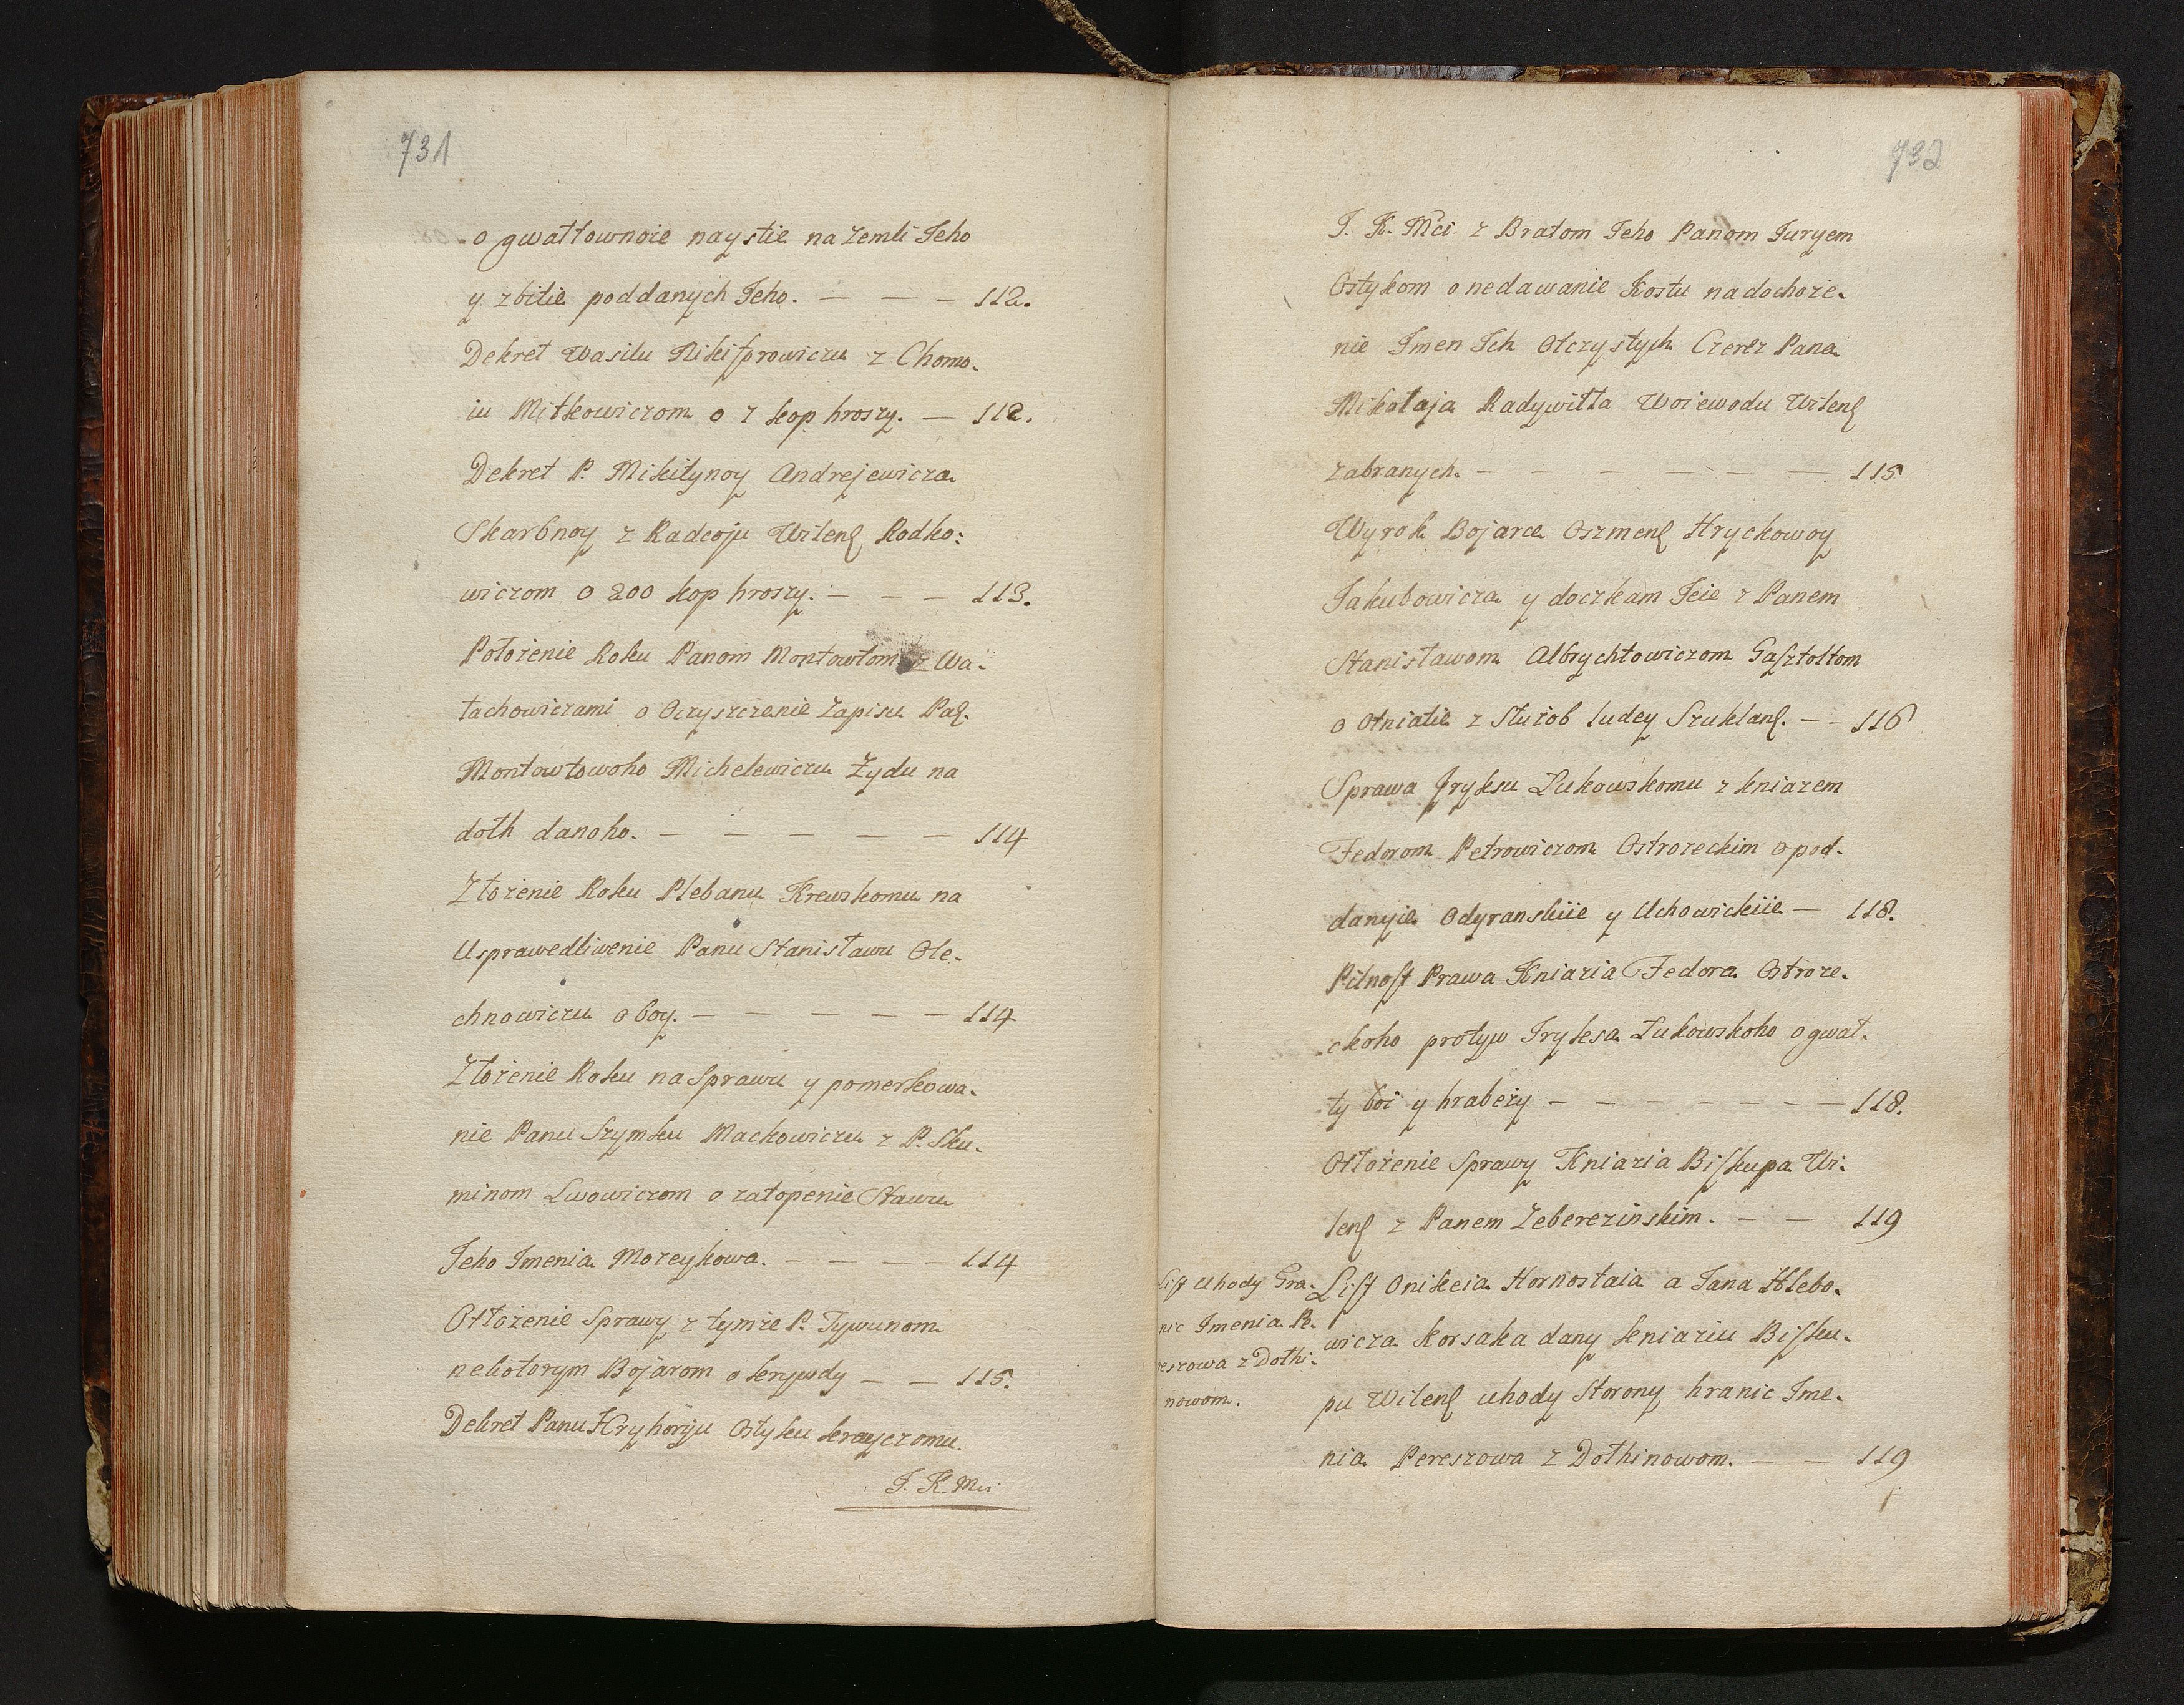 731
o gwałtownoie naystie na Zemli Jeho
y zbitie poddanych Jeho. — — — 112.
Dekret Wasilu Nikifprowiczu z Chomo-
iu Mitkowiczom o 7 kop hroszy. — 112.
Dekret P. Mikitynoy Andrejewicza
Skarbnoy z Radcoju Wilen Rodko:
wiczom o 200 kop hroszy. — — — 113.
Położenie Roku Panom Montowtom z Wa-
łachowiczami o Oczyszczenie Zapisu Pa
Montowtowoho Michelewiczu Żydu na
dołh danoho. — — — — — 114
Złożenie Roku Plebanu Krewskomu na
Usprawedliwenie Panu Stanisławu Ole-
chnowiczu o boy. — — — — — 114
Złożenie Roku na Sprawu y pomerkowa-
nie Panu Szymku Mackowiczu z P. Sku-
minom Lwowiczom o zatopenie Stawu
Jeho Imenia Mozeykowa. — — — — 114
Otłożenie Sprawy z tymże P. Tywunom
nekotorym Bojarom o krywdy — — 115.
Dekret Panu Hryhoriju Ostyku krayczomu.
J. K. Mci
732
J. K. Mci z Bratom Jeho Panom Juryem
Ostykom o nedawanie Kostu na dochoże-
nie Imen Ich Otczystych Czerez Pana
Mikołaja Radywiłła Woiewodu Wilen
zabranych. — — — — — — 115
Wyrok Bojarce Oszmen Hryckowoy
Jakubowicza y doczkam Jeie z Panem
Stanisławom Albrychtowiczom Gasztoltom
o Otniatie z Służob ludey Szuklan. — — 116
Sprawa Fryksu Łukowskomu z kniazem
Fedorom Petrowiczom Ostrozeckim o pod-
danyie Odyranskiie y Uchowickiie — 118.
Pilnost Prawa Kniazia Fedora Ostroze-
ckoho protyw Fryksa Łukowskoho o gwał-
ty boi y hrabeży — — — — — — — 118.
Otłożenie Sprawy Kniazia Biskupa Wi-
len z Panem Zeberezinskim. — — 119
List Onikeia Hornostaia a Jana Hlebo-
wicza Korsaka dany kniaziu Bisku-
pu Wilen uhody Storony hranic Ime-
nia Pereszowa z Dołhinowom. — — 119
List Uhody Gra-
nic Imenia Pe-
reszowa z Dołhi-
nowom.